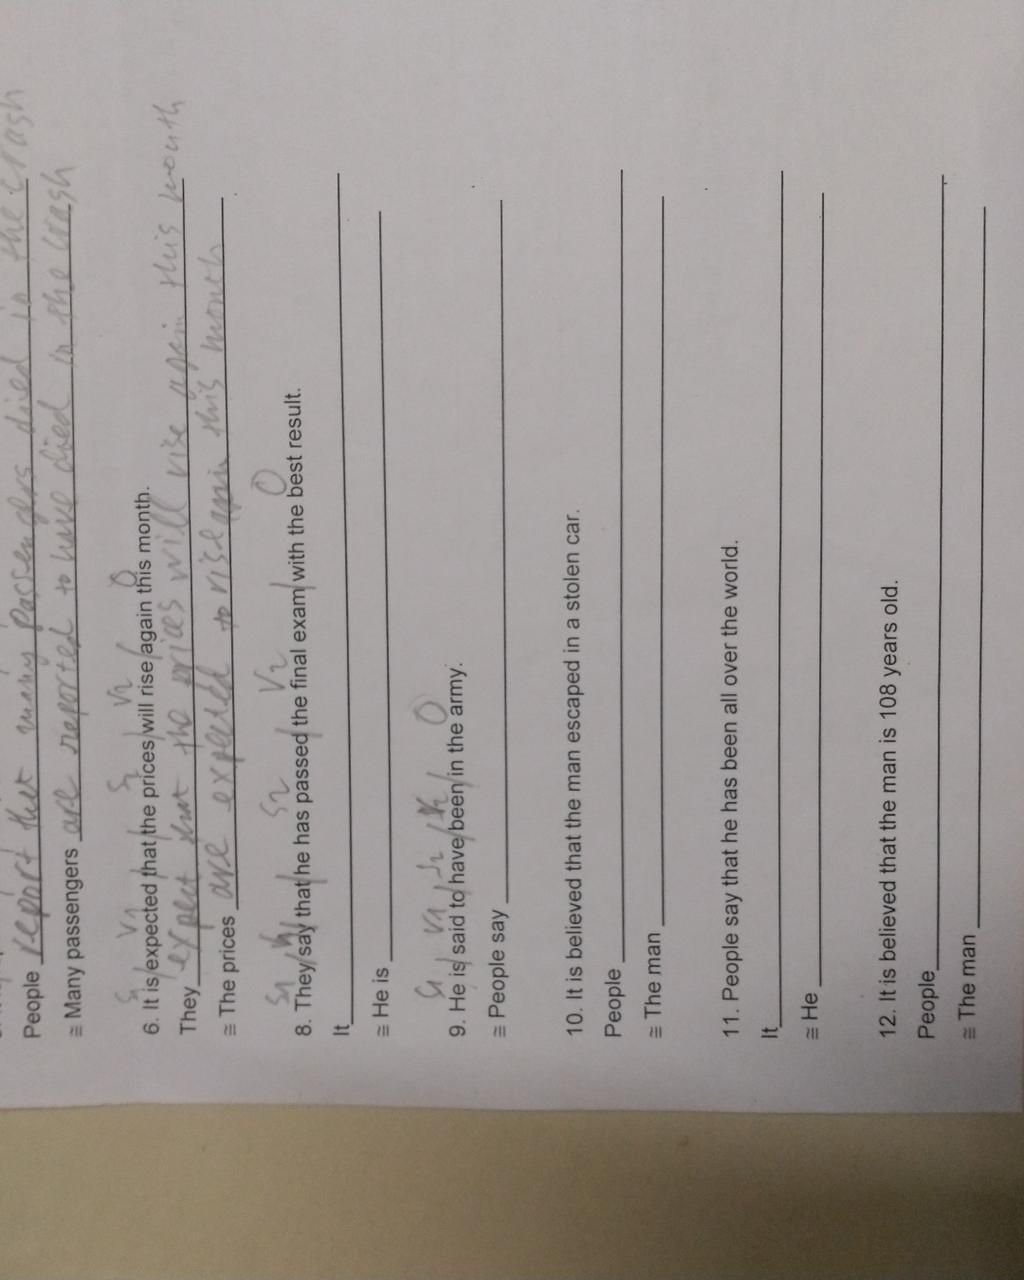 People report that many passengers died in the crash
≅ Many passengers are reported to have died in the crash
S1 V1 S2 V2 O
6. It is/expected/that/the prices/will rise/again this month.
They expect that the prices will rise again this month
≅ The prices are expected to rise again this month
S1 V1 S2 V2 O
8. They/say/that/he has passed/the final exam/with the best result.
It
≅ He is
S1 V1 O
9. He is/said to/have/been/in the army.
≅ People say
10. It is believed that the man escaped in a stolen car.
People
≅ The man
11. People say that he has been all over the world.
It
≅ He
12. It is believed that the man is 108 years old.
People
≅ The man